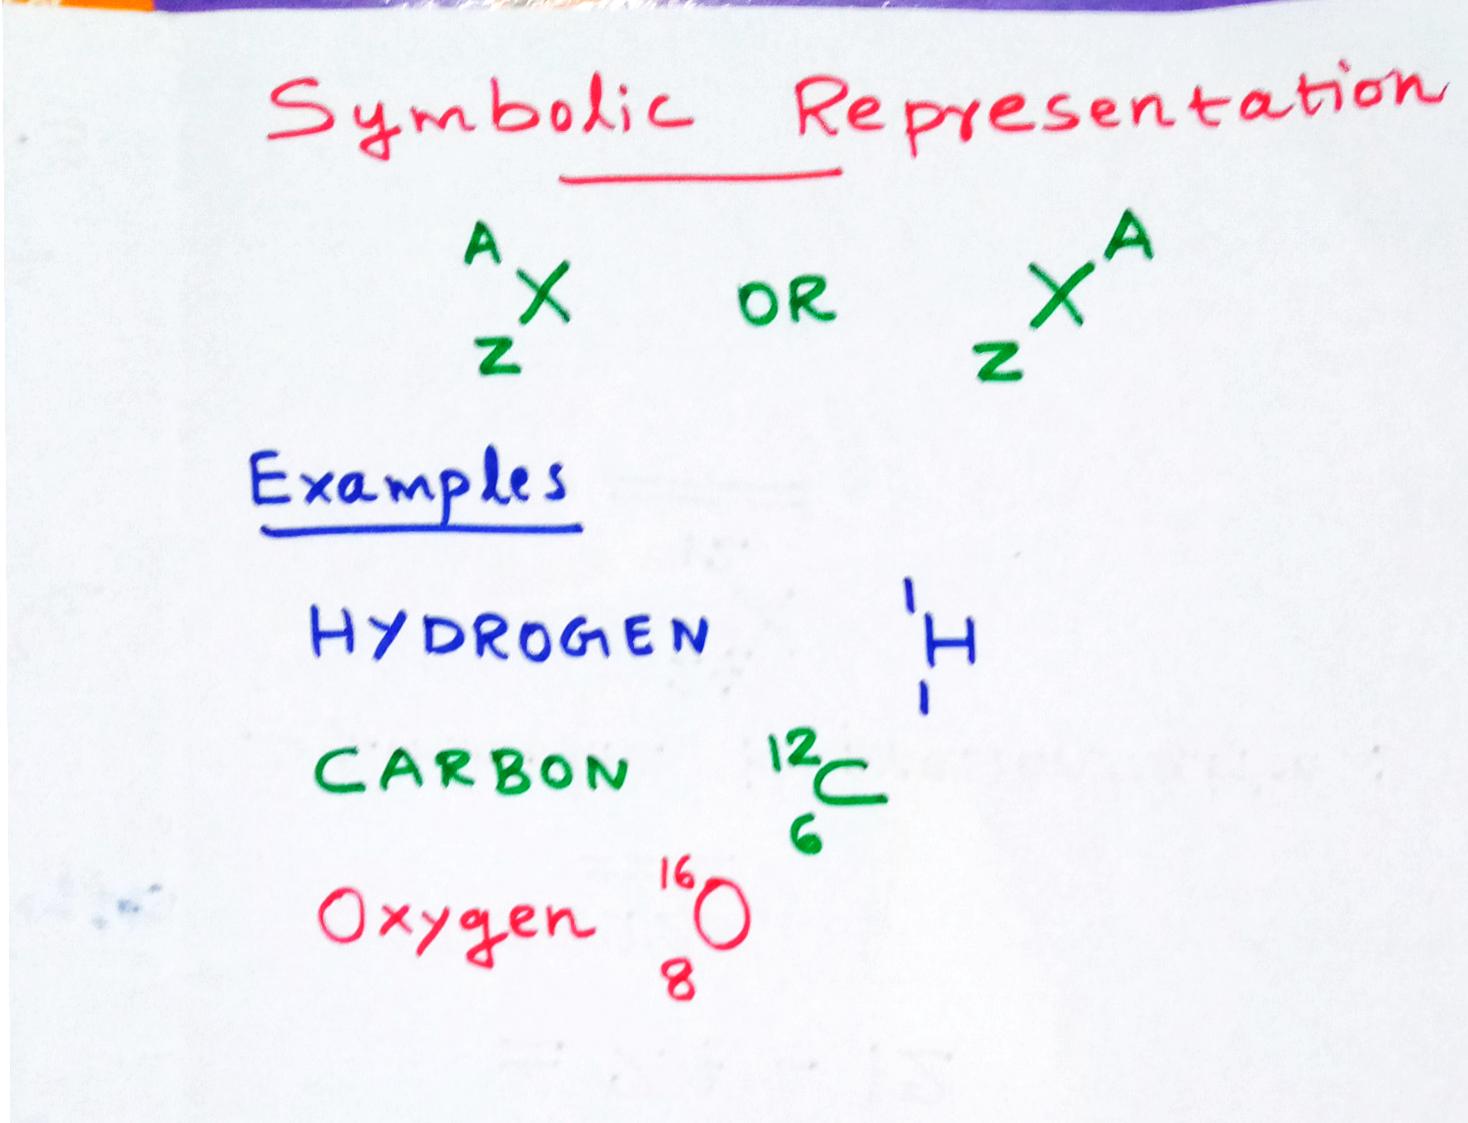 Symbolic Representation
ᴬ X OR X ᴬ
Z Z
Examples
HYDROGEN ¹₁H
CARBON ¹²₆C
Oxygen ¹⁶₈O